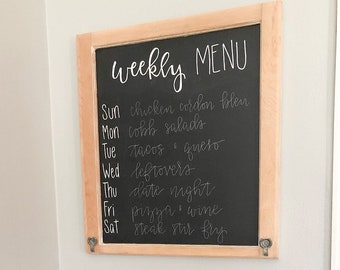 weekly MENU
Sun chicken cordon bleu
Mon cobb salads
Tue tacos & queso
Wed leftovers
Thu date night
Fri pizza & wine
Sat steak stir fry